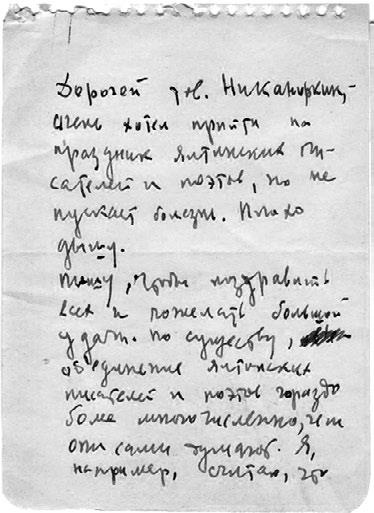 Дорогой тов. Никаноркин,
очень хотел прийти на
праздник ялтинских пи-
сателей и поэтов, но не
пускает болезнь. Плохо
дышу.
Пишу, чтобы поздравить
всех и пожелать большой
удачи. По существу,
об'единение ялтинских
писателей и поэтов гораздо
более многочисленно, чем
они сами думают. Я,
например, считаю, что